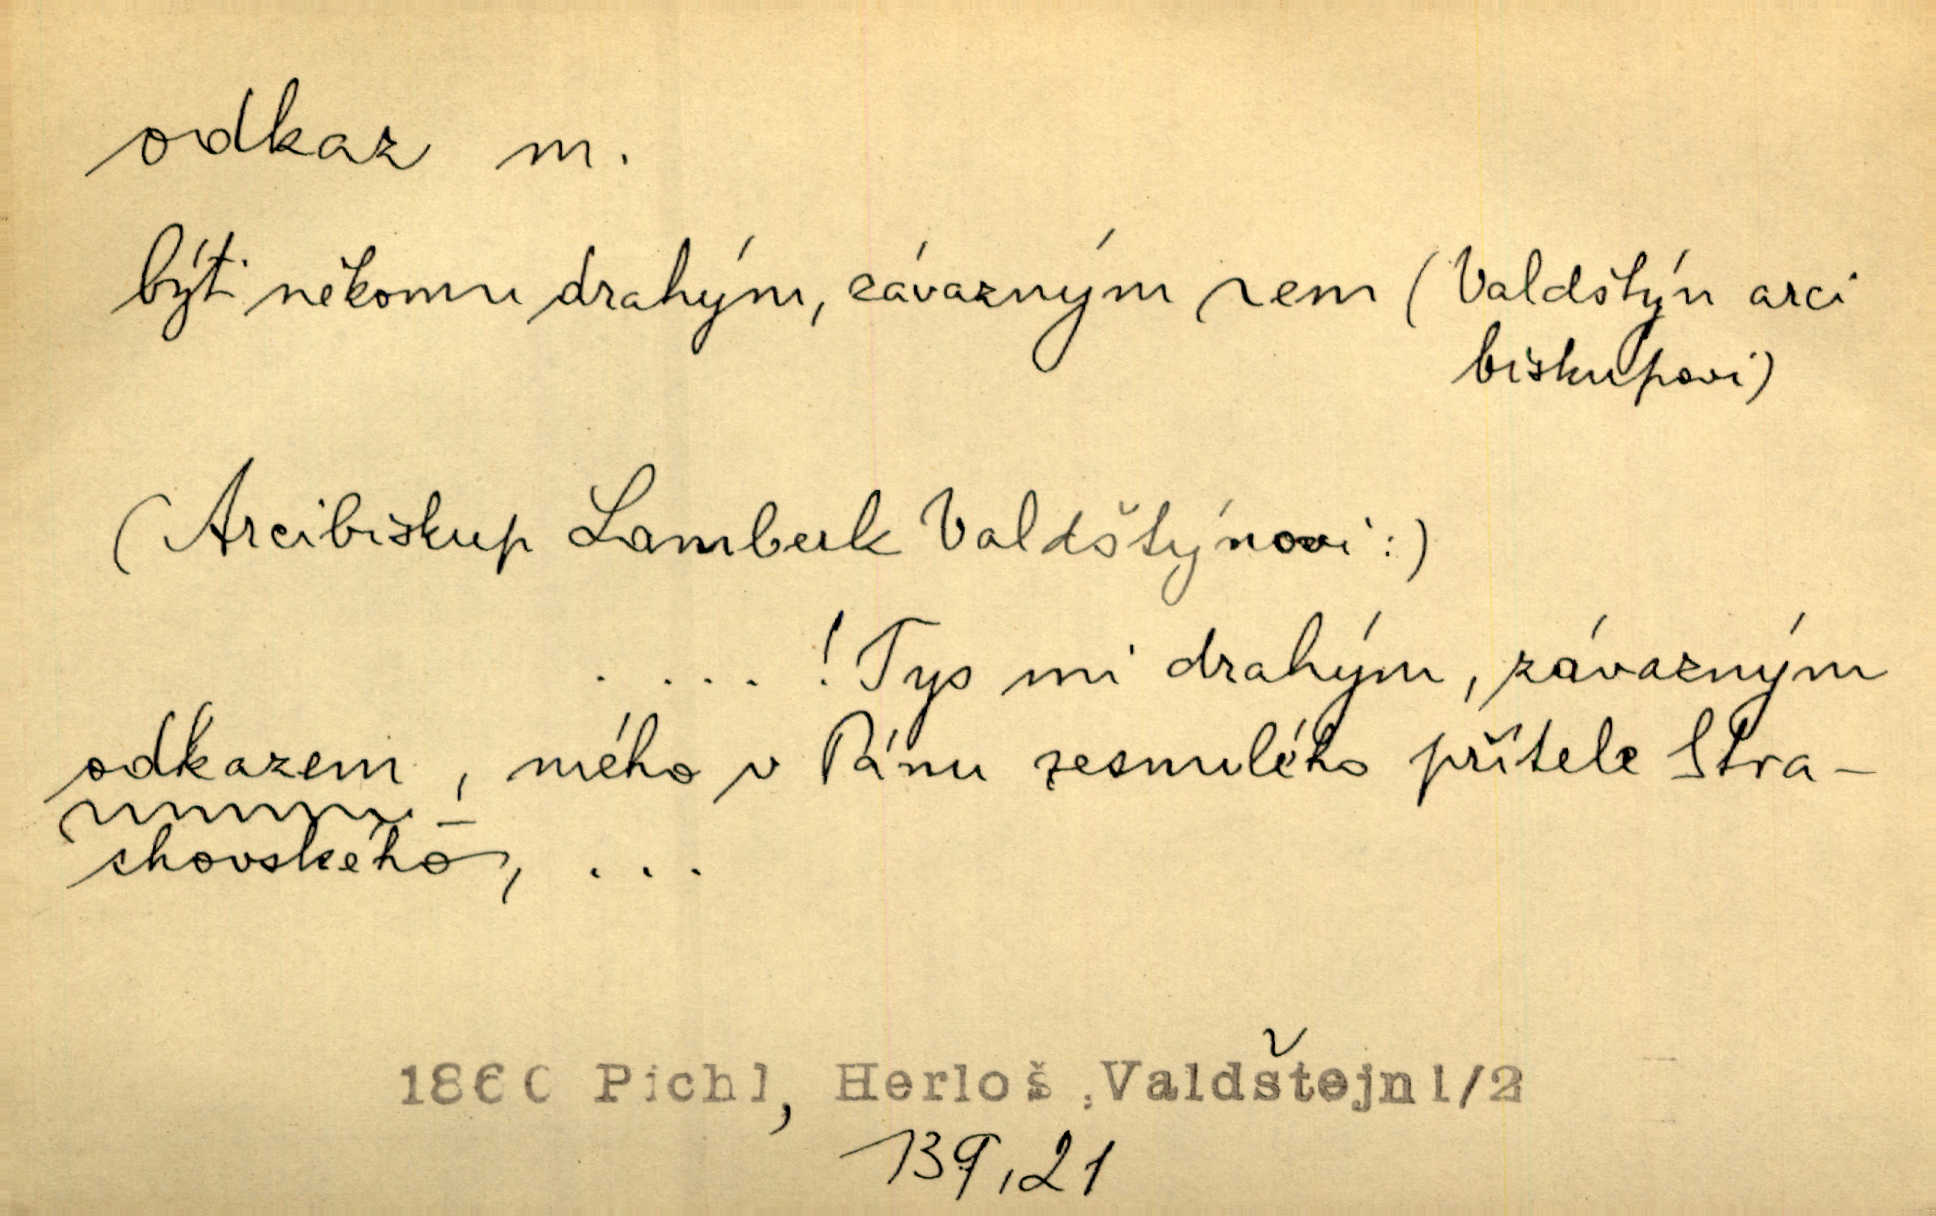 odkaz m.
býti někomu drahým, závazným zem (Valdštýn arci
biskupovi)
(Arcibiskup Lamberk Valdštýnovi:)
. ... ! Tys mi drahým, závazným
odkazem, mého v Pánu zesnulého přítele Stra-
chovského, ...
1860 Pichl, Herloš:Valdštejn1/2
139,21